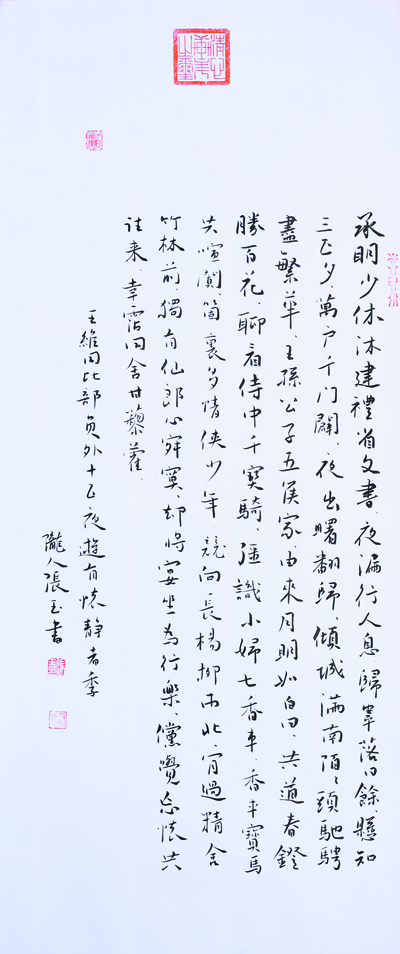 承明少休沐建禮省文書、夜漏行人息歸鞌落日餘、懸知
三五夕、萬户千门闢、夜出曙翻歸、傾城满南陌々頭馳騁
盡繁華、王孫公子五侯家、由来月明如白日、共道春鐙
勝百花、聊看侍中千寶騎、彊識小婦七香車、香車寶馬
共喧闐箇裏多情俠少年、競向長楊柳市北、肯過精舍
竹林前、獨有仙郎心寂寞、却将宴坐為行樂、儻覺忘懷共
往来、幸霑同舍甘藜藿、
王維同比部員外十五夜遊有懷静者季
隴人張玉書